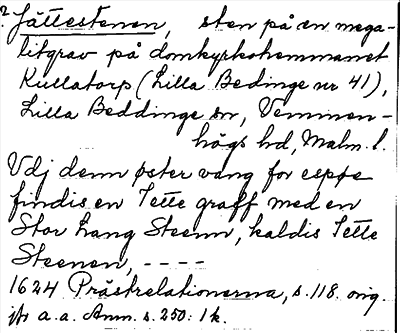 2. Jättestenen, sten på en mega-
litgrav på domkyrkohemmanet
Kullatorp (Lilla Bedinge nr 41),
Lilla Beddinge sn, Vemmen-
högs hd, Malm. l.
Vdj denn øster vang for espøe
findis en Jette graff med en
Stor Lang Steenn, kaldis Jette
Steenen, ----
1624 Prästrelationerna, s. 118. orig.
jfr a.a. Anm. s. 250: 1k.